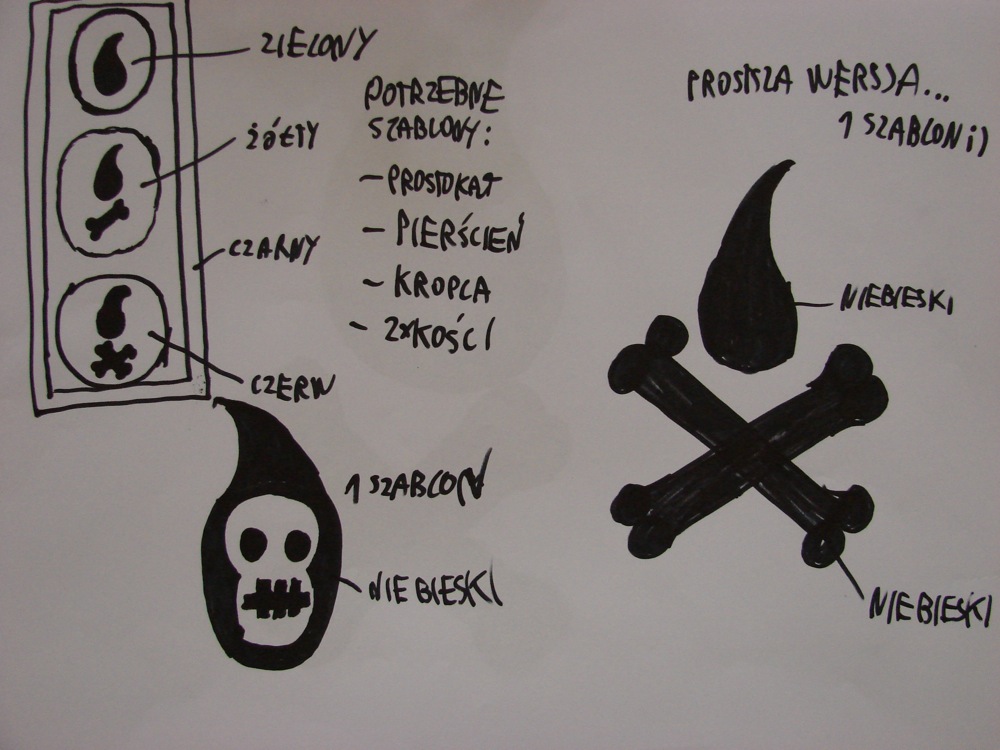 ZIELONY
ŻÓŁTY
CZARNY
CZERW
POTRZEBNE
SZABLONY:
- PROSTOKĄT
- PIERŚCIEŃ
- KROPLA
- 2xKOŚCI
1 SZABLON
NIEBIESKI
PROSTSZA WERSJA...
1 SZABLON ;)
NIEBIESKI
NIEBIESKI